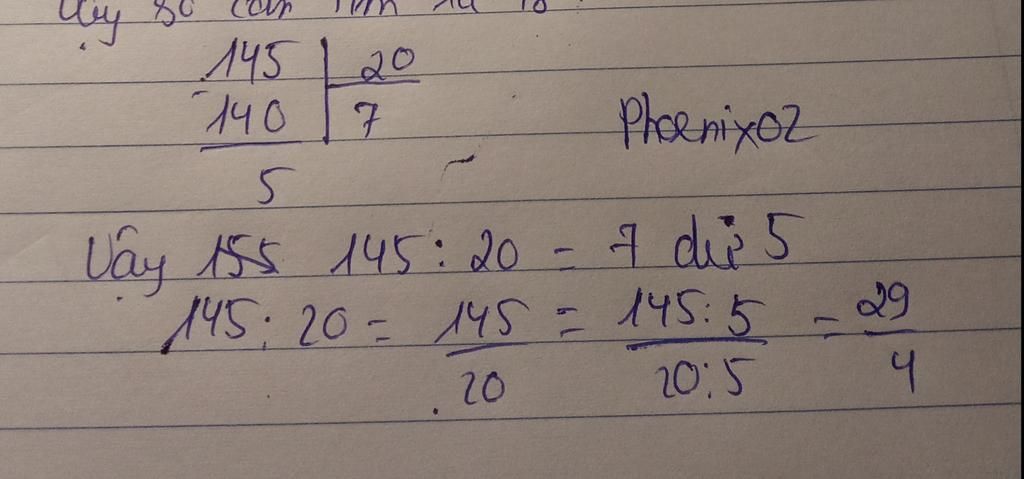 145 | 20
- 140 | 7
5
Phoenix02
Vậy 155 145 : 20 = 7 dư 5
145 : 20 = 145/20 = 145:5/20:5 = 29/4